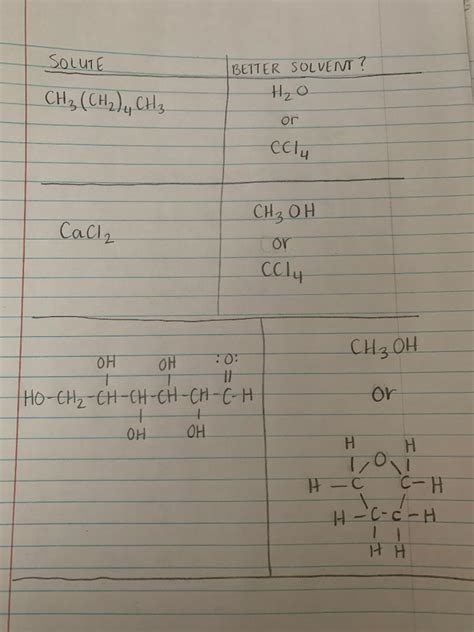 SOLUTE
BETTER SOLVENT?
CH₃(CH₂)₄CH₃
H₂O
or
CCl₄
CaCl₂
CH₃OH
or
CCl₄
OH OH :O:
HO-CH₂-CH-CH-CH-CH-C-H
OH OH
CH₃OH
or
H H
O
H-C C-H
H-C-C-H
H H